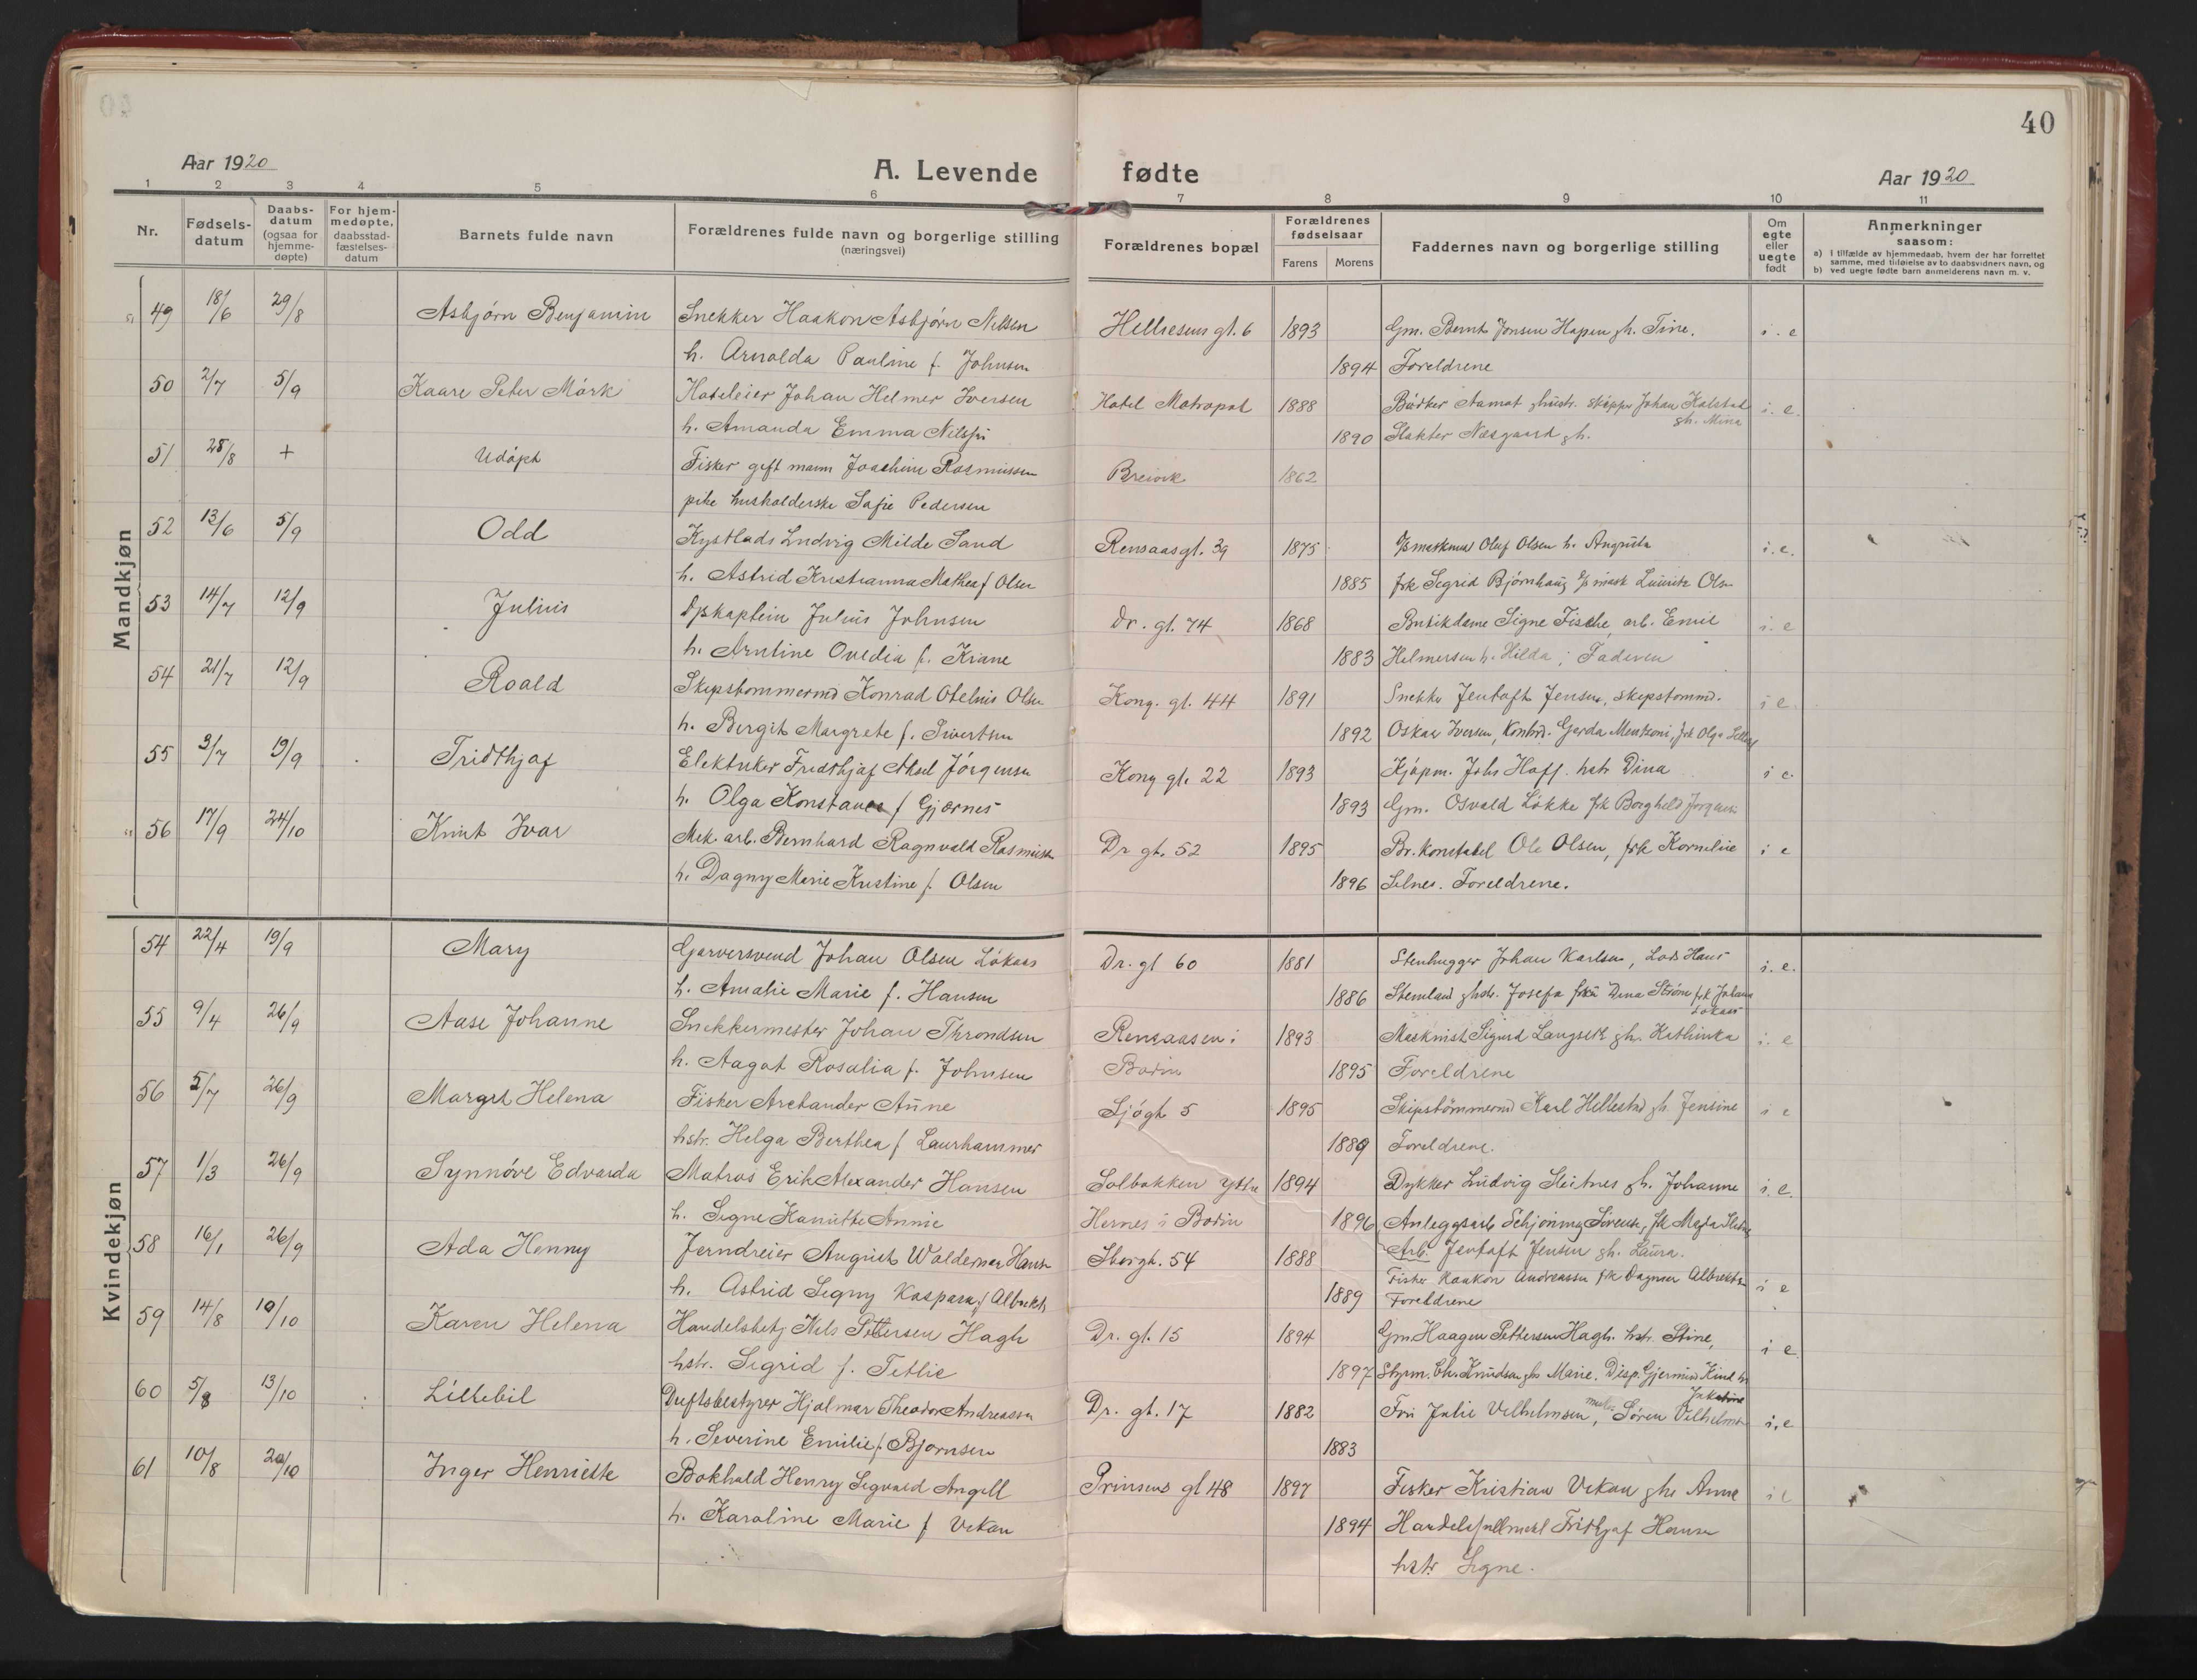 40
Aar 1920
A. Levende fødte
Aar 1920
1 2 3 4 5 6 7 8 9 10 11
Nr.
Fødselsdatum
Daabsdatum (ogsaa for hjemmedøpte)
For hjemmedøpte, daabsstadfæstelsesdatum
Barnets fulde navn
Forældrenes fulde navn og borgerlige stilling (næringsvei)
Forældrenes bopæl
Forældrenes fødselsaar
Farens Morens
Faddernes navn og borgerlige stilling
Om egte eller uegte født
Anmerkninger saasom:
a) I tilfælde av hjemmedaab, hvem der har forrettet samme, med tilføielse av to daabsvidners navn, og
b) ved uegte fødte barn anmelderens navn m. v.
Mandkjøn
49 18/6 29/8 Asbjørn Benjamin Snekker Haakon Asbjørn Nilsen Hellresens gt. 6 1893 Gm. Bernt Jonsen Hagen gh. Tine. i. e
h. Arnolda Pauline f. Johnsen 1894 Foreldrene
50 2/7 5/9 Kaare Peter Mørk Hoteleier Johan Helmer Iversen Hotel Metropol 1888 Bødker Aamot ghustr. skipper Johan Kalstad gh. Mina i. e.
h. Amanda Emma Nilssen 1890 Slakter Næsgaard gh.
51 28/8 + Udøpt Fisker gift mann Joachim Rasmussen Breivik 1862
pike husholderske Sofie Pedersen
52 13/6 5/9 Odd Ludvig Milde Sand Rensaasgt. 39 1875 Olaf Olsen h. Augusta i. e.
h. Astrid Kristianna Mathea f Olsen 1885 frk Sigrid Bjørnhaug Lauritz Olsen
53 14/7 12/9 Julius Dpskaptein Julius Johnsen Dr. gt. 74 1868 Butikdame Signe Fische, arb. Emil i. e
h. Arntine Ovedia f. Krane 1883 Helmersen h. Hilda; Faderen
54 21/7 12/9 Roald Skipstømmermd Konrad Otelius Olsen Kong. gt. 44 1891 Snekker Jentoft Jensen, skipstømmd. i e.
h. Bergit Margrete f. Sivertsen 1892 Oskar Iversen, Kontord. Gerda Mentzoni, frk Olga
55 3/7 19/9 Fridthjof Elektriker Fridthjof Aksel Jørgensen Kong gt. 22 1893 Kjøpm. Johs Hoff. hstr Dina i e.
h. Olga Konstance f Gjærnes 1893 Gm. Osvald Løkke frk Borghild Jørgensen
56 17/9 24/10 Knut Ivar Mek. arb. Bernhard Ragnvald Rasmussen Dr gt. 52 1895 Br. konstabel Ole Olsen, frk Kornelie i e
h. Dagny Marie Kristine f. Olsen 1896 Selnes. Foreldrene.
Kvindekjøn
54 22/4 19/9 Mary Garversvend Johan Olsen Løkaas Dr. gt 60 1881 Stenhugger Johan Karlsen, Lods Hans i. e.
h. Amalie Marie f. Hansen 1886 Stemland ghstr. Josefa frk Dina Strøm frk Johana Løkaas
55 9/4 26/9 Aase Johanne Snekkermester Johan Throndsen Rensaasen i 1893 Maskinist Sigurd Langseth gh. Kathinka i. e
h. Aagot Rosalia f. Johnsen Bodin 1895 Foreldrene
56 5/7 26/9 Margit Helena Fisker Arebander Aune Sjøgt 5 1895 Skipstømmermd Karl Hellestad gh. Jensine i e
hstr. Helga Berthea f Laurhammer 1889 Foreldrene.
57 1/3 26/9 Synnøve Edvarda Matros Erik Alexander Hansen Solbakken Ytre 1894 Dykker Ludvig Sleitnes gh. Johanne i. e.
h. Signe Hanitte Annie Hernes i Bodin 1896 Anleggsarb Schjøning Sørensen, frk Magda
58 16/1 26/9 Ada Henny Jerndreier August Waldemar Hansen Storgt. 54 1888 Arb. Jentoft Jensen gh. Laura. i e
h. Astrid Signy Kaspara f Albrektsen 1889 Fisker Haakon Andreassen frk Dagmar Albrektsen
Foreldrene
59 14/8 10/10 Karen Helena Handelsbetj Nils Pettersen Hagh Dr. gt. 15 1894 Gm. Haagen Pettersen Hagh. hstr. Stine, i e.
hstr. Sigrid f. Tetlie 1897 Styrm. Chr Knudsen ghs Marie. Disp. Gjermund
60 5/8 13/10 Lillebil Driftsbestyrer Hjalmar Theodor Andreassen Dr. gt. 17 1882 Fru Julie Vilhelmsen, Søren Vilhelmsen i, e
h. Severine Emilie f. Bjørnsen 1883
61 10/8 20/10 Inger Henriette Bokhold Henry Sigvald Angell Prinsens gt 48 1897 Fisker Kristian Vikan ghs Anna i e
h. Karoline Marie f Vikan 1894 Handelsfullmekt Fridthjof Hansen
hstr Signe.